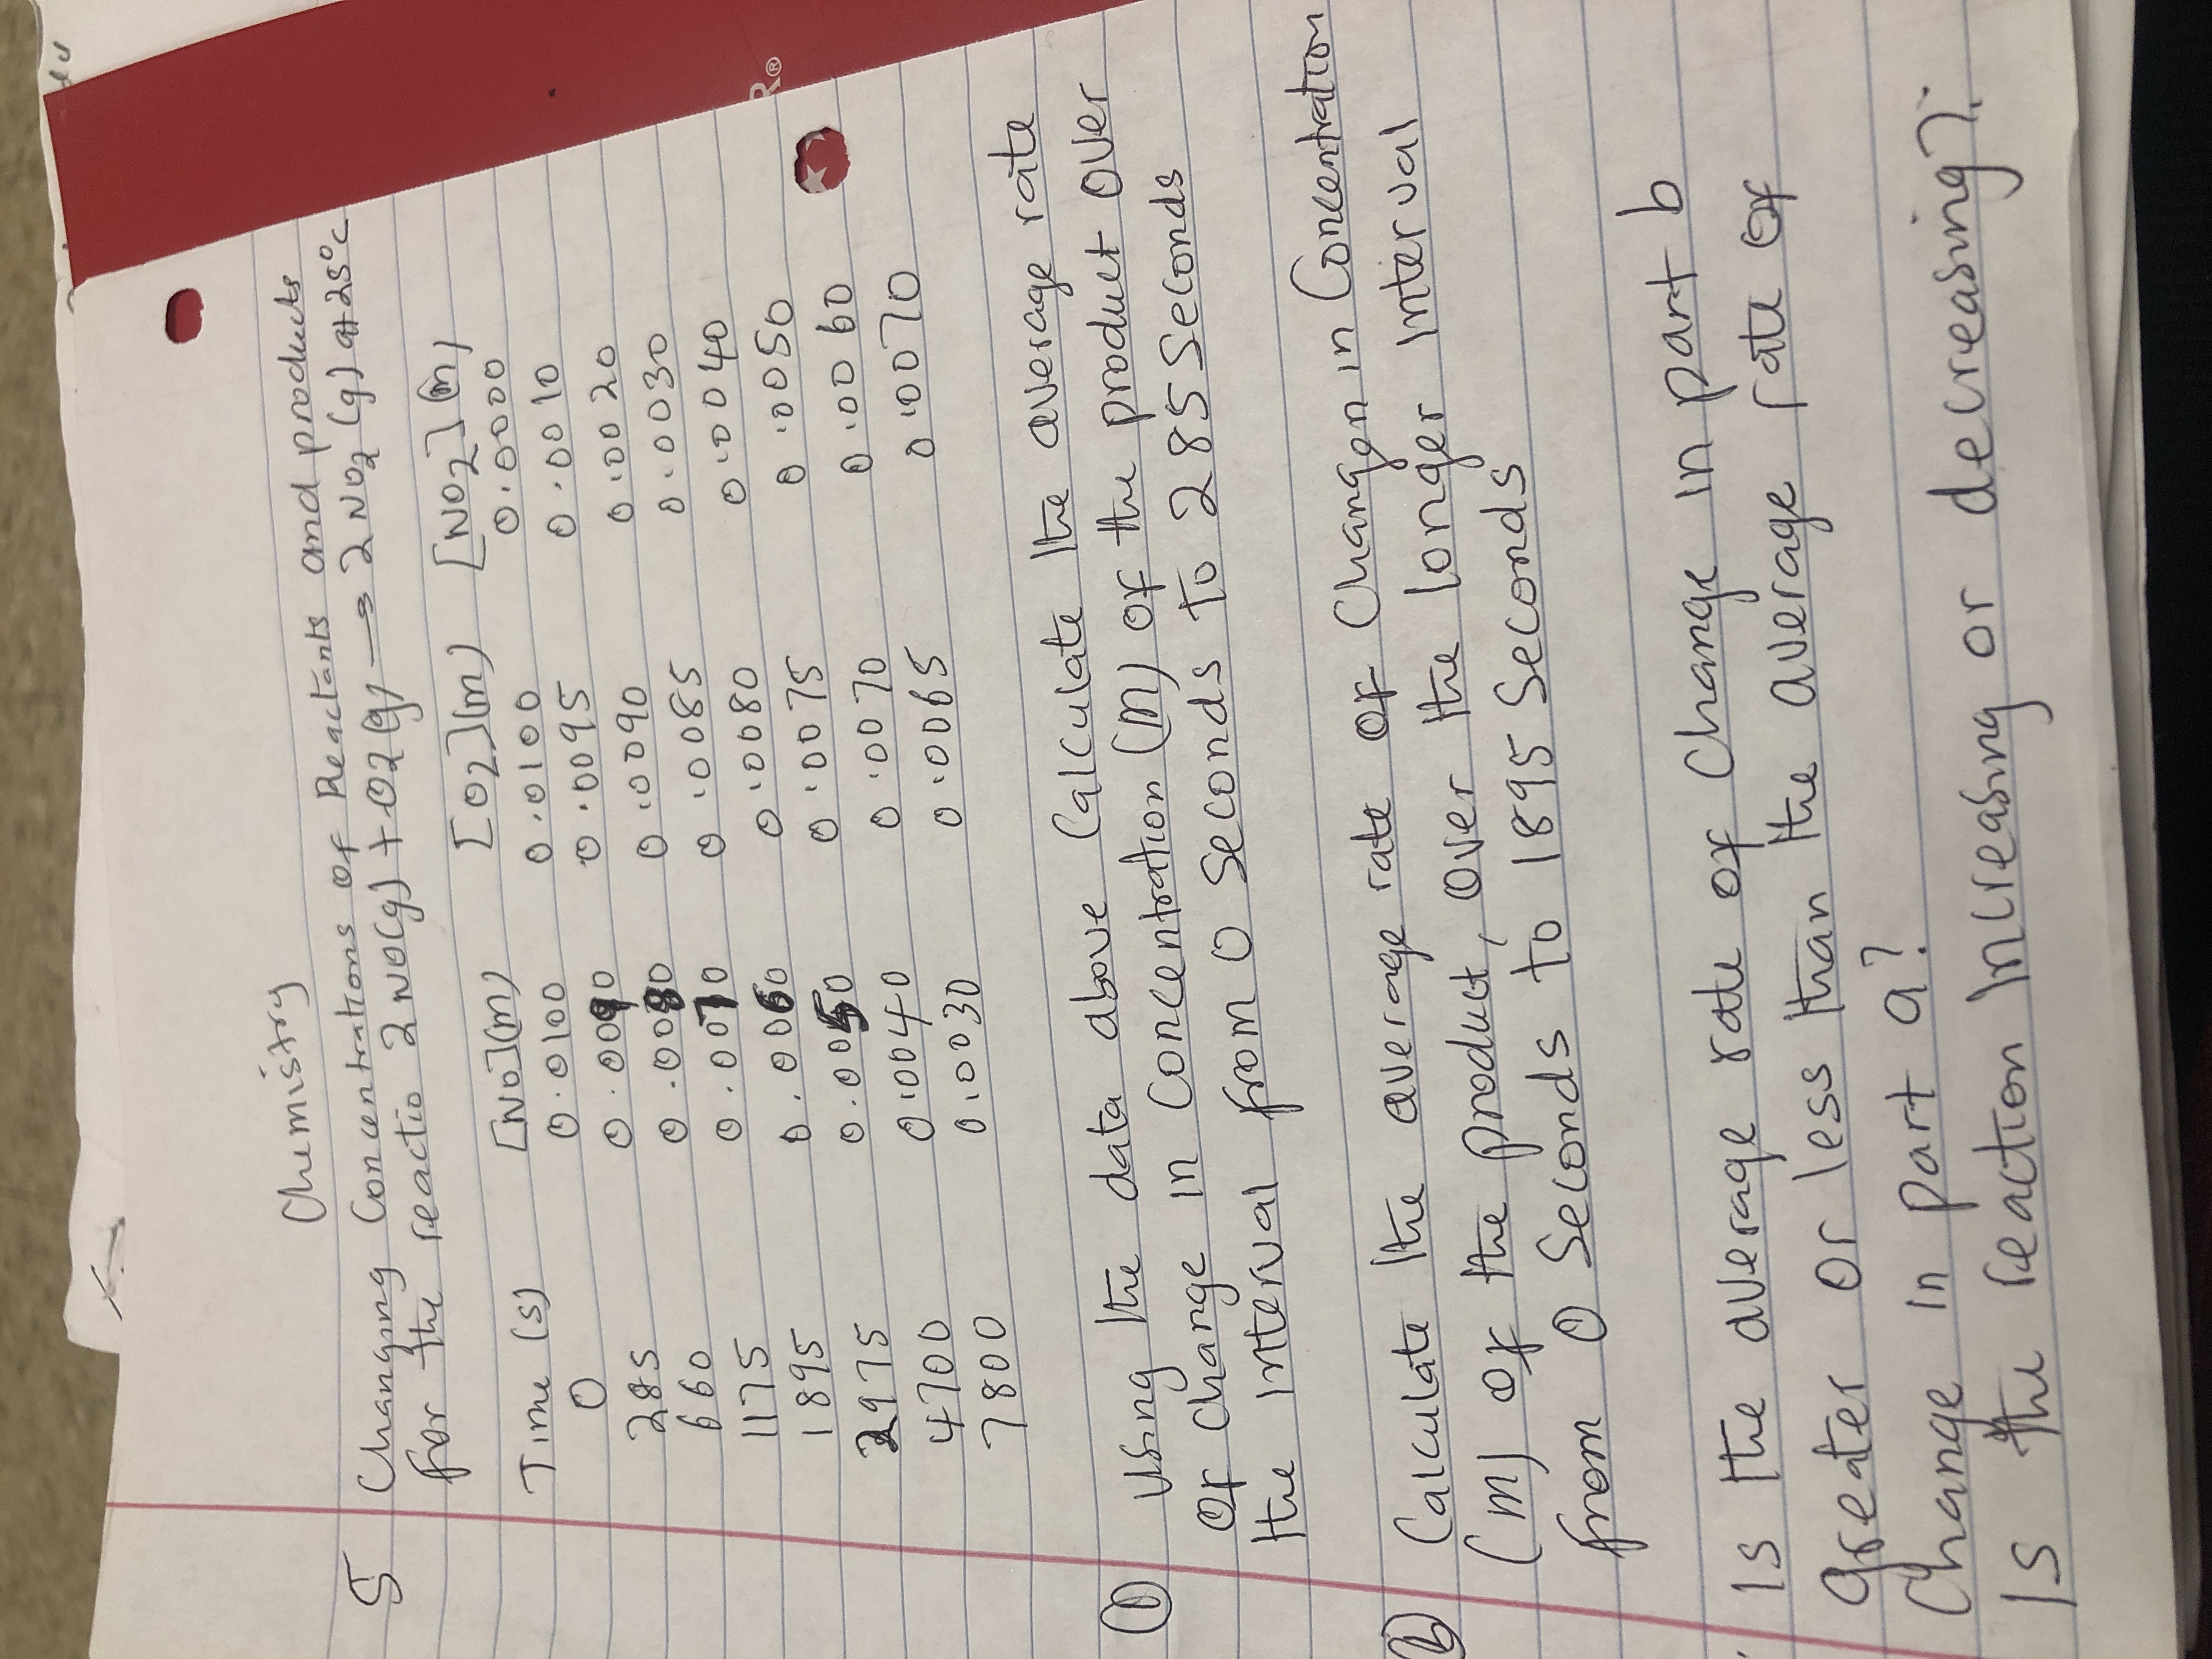 Chemistry
5 Changing Concentrations of Reactants and products
for the reactio 2 NO(g) + O2(g) → 2 NO2 (g) at 25°c
Time (s) [NO](m) [O2](m) [NO2](m)
0 0.0100 0.0100 0.0000
285 0.0090 0.0095 0.0010
660 0.0080 0.0090 0.0020
1175 0.0070 0.0085 0.0030
1895 0.0060 0.0080 0.0040
2975 0.0050 0.0075 0.0050
4700 0.0040 0.0070 0.0060
7800 0.0030 0.0065 0.0070
① Using the data above Calculate the average rate
Of Change in Concentration (M) of the product Over
the Interval from 0 Seconds to 285 Seconds
Calculate the average rate of Changen in Concentration
(m) of the product, Over the longer Interval
from 0 Seconds to 1895 Seconds
Is the average rate of Change in part b
greater or less than the average rate of
Change in part a?
Is the reaction Increasing or decreasing?
R®